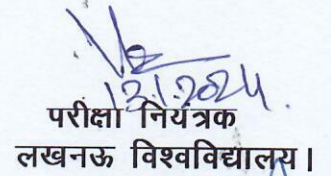 13.1.2024.
परीक्षा नियंत्रक
लखनऊ विश्वविद्यालय।